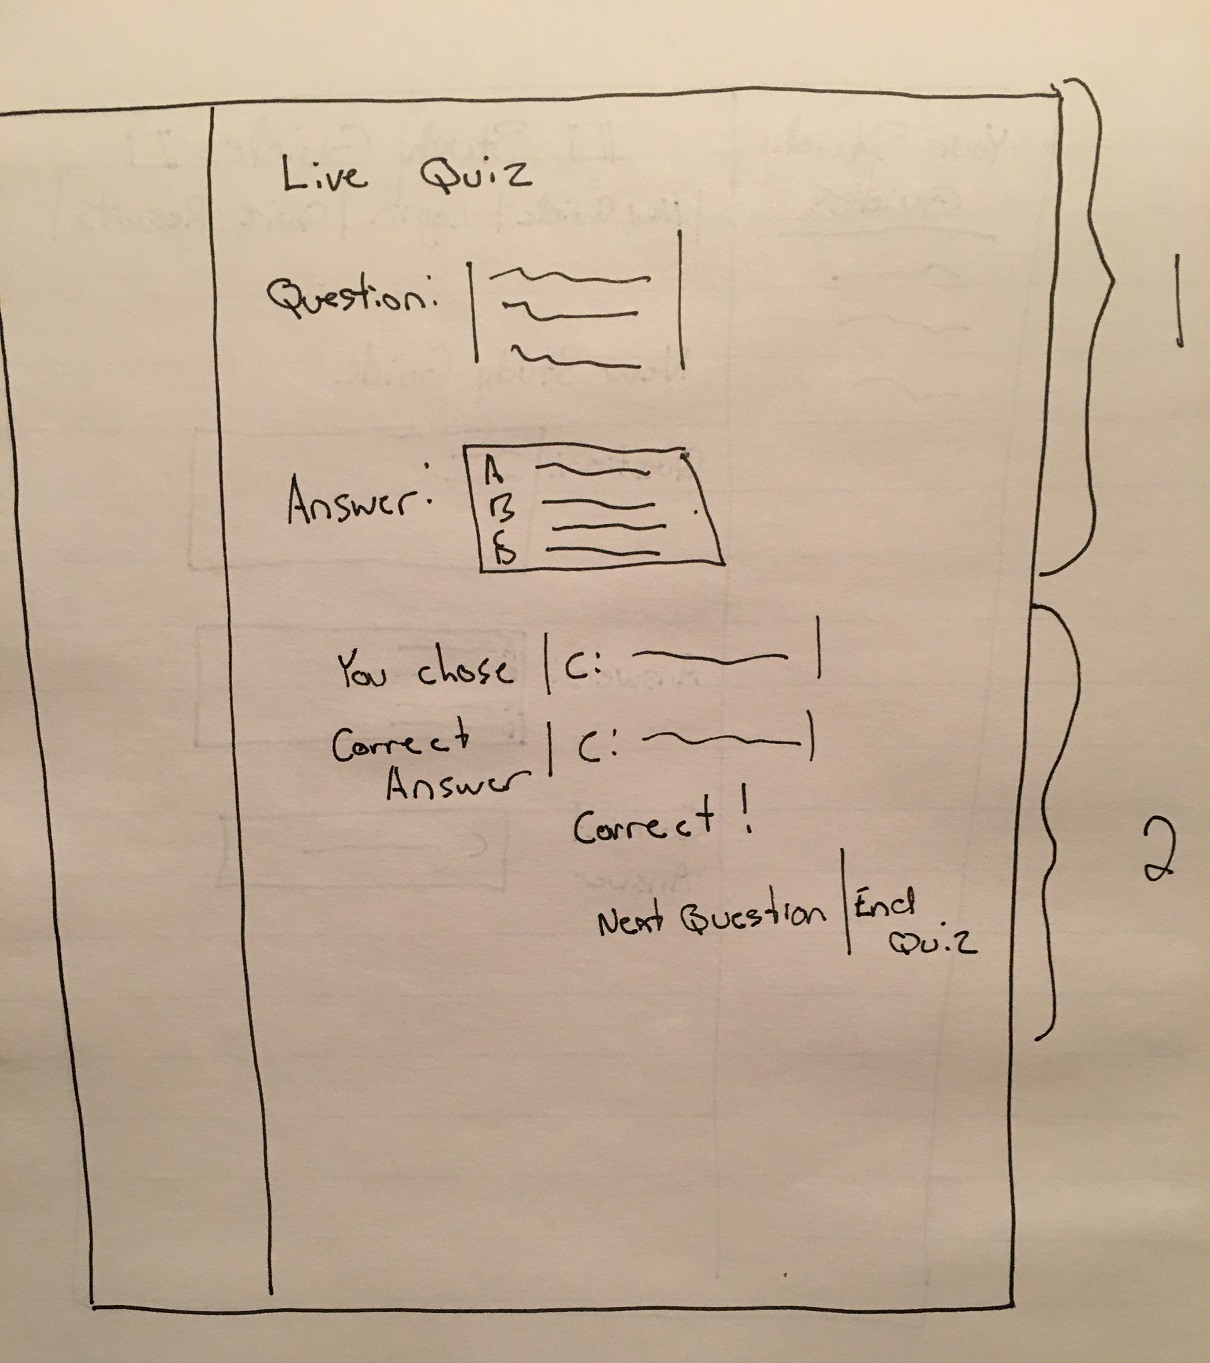 Live Quiz
Question:
Answer:
A
B
You chose | C:
Correct | C:
Answer
Correct !
Next Question | End
Quiz
1
2